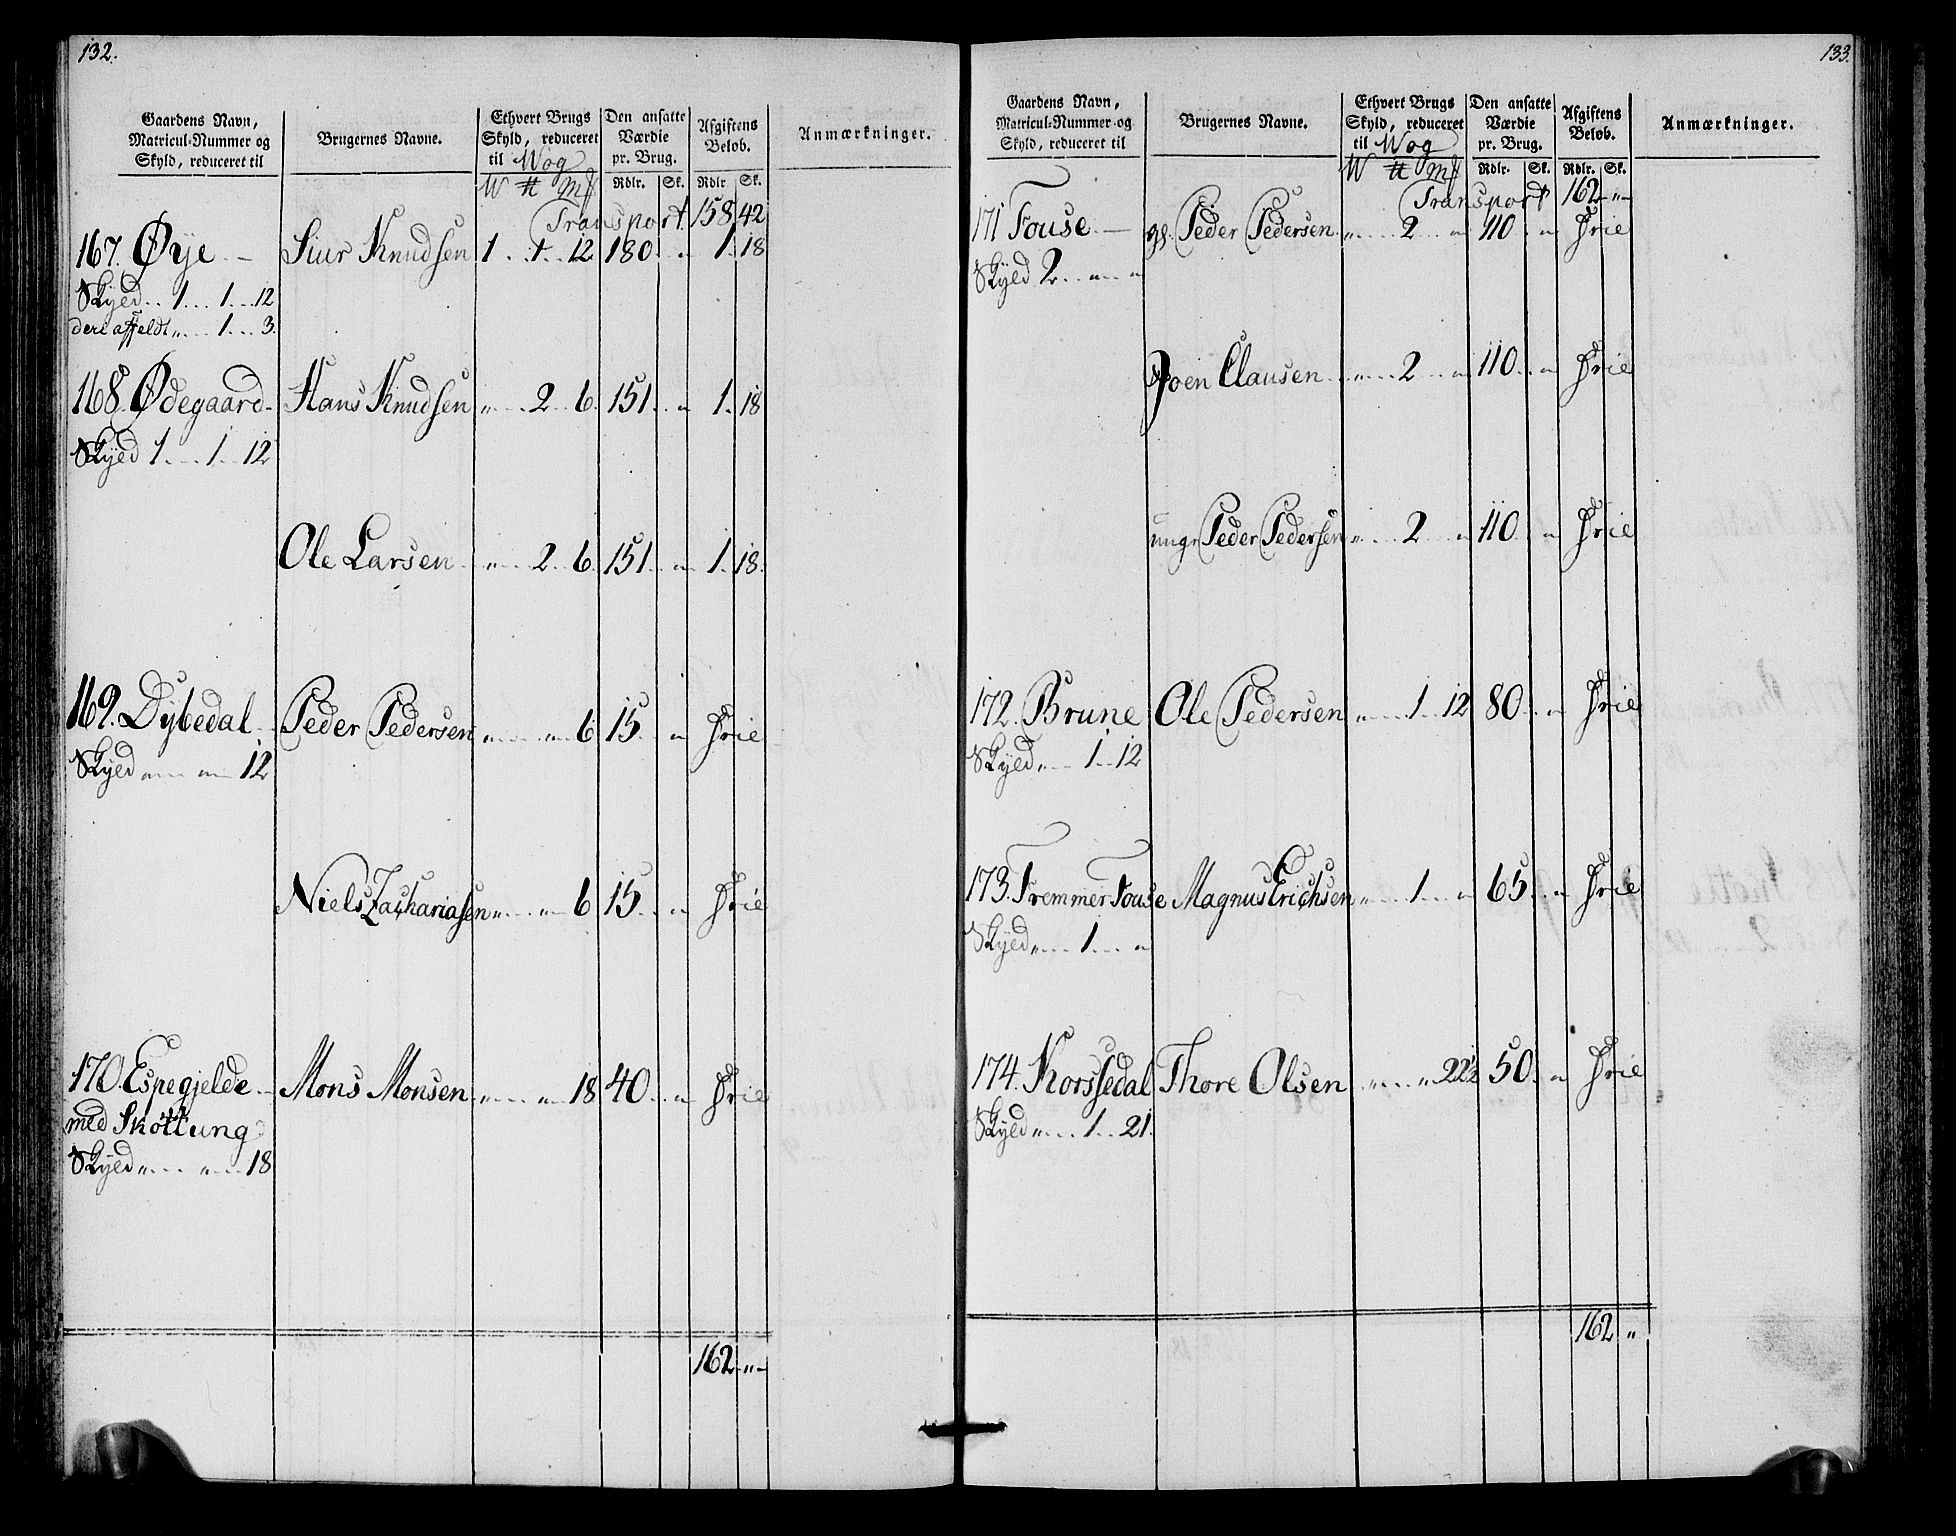 132.
Gaardens Navn, Matricul-Nummer og Skyld, reduceret til | Brugernes Navne. | Ethvert Brugs Skyld, reduceret til Wog | Den ansatte Værdie pr. Brug. | Afgiftens Beløb. | Anmærkninger.
W ℔ Mk | Rdlr. | Sk. | Rdlr | Sk.
Transport 158 42
167. Øye Siur Knudsen 1 . 1 . 12 180 . " 1 . 18
Skyld . 1 . 1 . 12
deri affældt " . 1 . 3.
168. Ødegaard Hans Knudsen " . 2 . 6 151 . " 1 . 18
Skyld 1 . 1 . 12
Ole Larsen " . 2 . 6 151 . " 1 . 18.
169. Dybedal Peder Pedersen " . " . 6 15 . " Frie
Skyld " . " . 12
Niels Zachariasen " . " . 6 15 . " Frie
170. Espegjelde Mons Monsen " . " . 18 40 . " Frie
med Skottung
Skyld " . " . 18
162 "
133.
Gaardens Navn, Matricul-Nummer og Skyld, reduceret til | Brugernes Navne. | Ethvert Brugs Skyld, reduceret til Wog | Den ansatte Værdie pr. Brug. | Afgiftens Beløb. | Anmærkninger.
W ℔ Mk | Rdlr. | Sk. | Rdlr. | Sk.
Transport 162 "
171 Touse gl. Peder Pedersen " . 2 . " 110 . " Frie
Skyld 2 . " . "
Joen Clausen " . 2 . " 110 . " Frie
unge Peder Pedersen " . 2 . " 110 . " Frie
172. Brune Ole Pedersen " . 1 . 12 80 . " Frie
Skyld " . 1 . 12
173. Fremmer Touse Magnus Erichsen " . 1 . " 65 . " Frie
Skyld " . 1 . "
174. Korssedal Thore Olsen " . " . 22½ 50 . " Frie
Skyld " . 1 . 21.
162 "